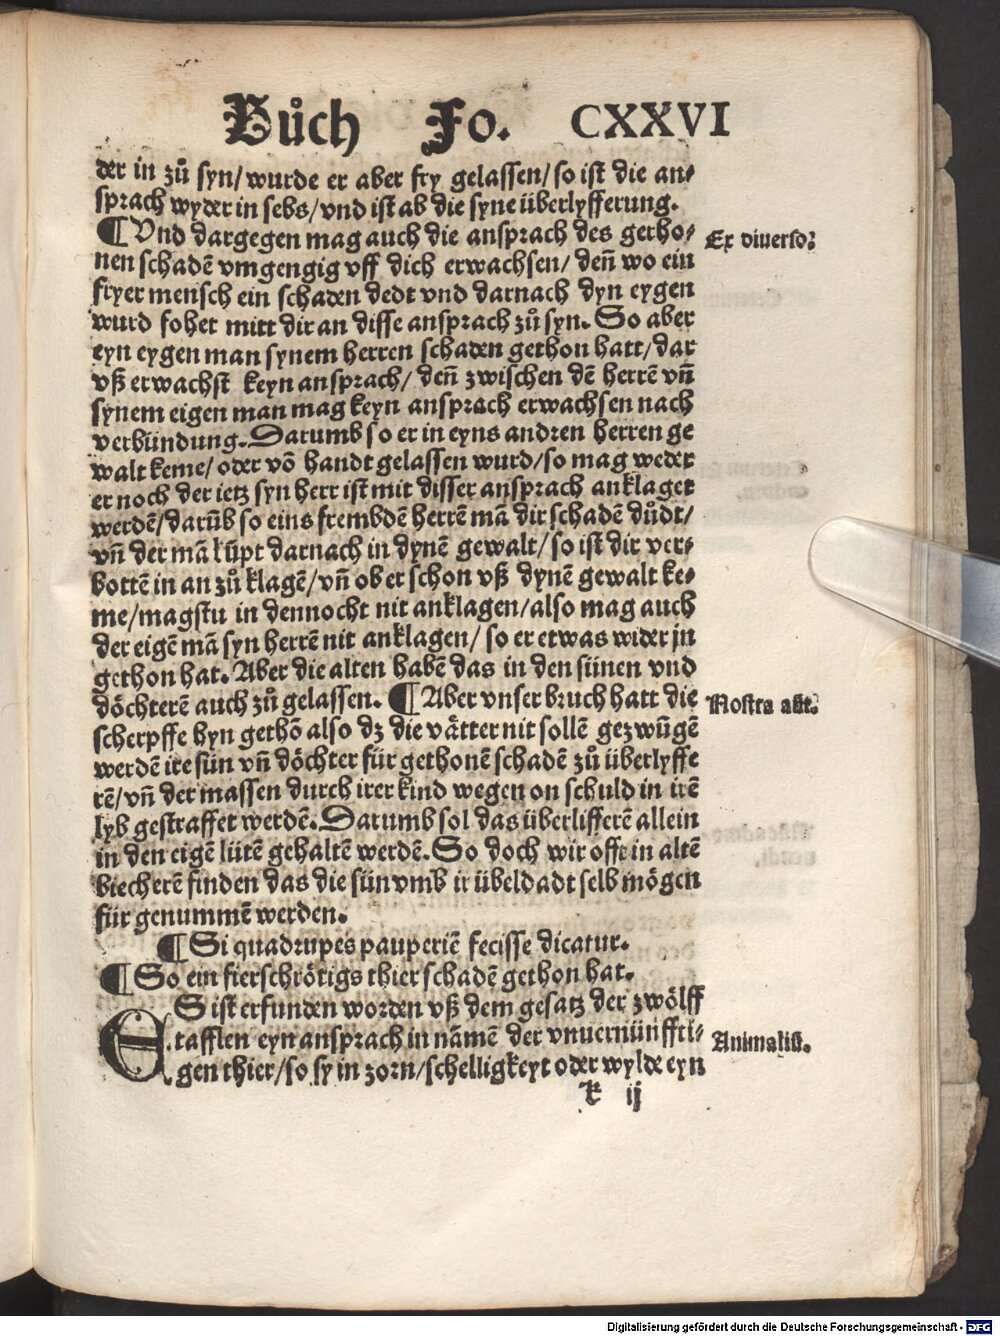 Bůch Fo. CXXVI
der in zů syn/ wurde er aber fry gelassen/ so ist die an⸗
sprach wyder in sebs/ vnd ist ab die syne überlyfferung.
¶ Vnd dargegen mag auch die ansprach des getho⸗
Ex diuerso:
nen schadē vmgengig vff dich erwachsen/ deñ wo ein
fryer mensch ein schaden dedt vnd darnach dyn eygen
wurd fohet mitt dir an disse ansprach zů syn. So aber
eyn eygen man synem herren schaden gethon hatt/ dar
vß erwachst keyn ansprach/ deñ zwischen dē herrē vñ
synem eigen man mag keyn ansprach erwachsen nach
verbündung. Darumb so er in eyns andren herren ge
walt keme/ oder vō handt gelassen wurd/ so mag weder
er noch der ietz syn herr ist mit disser ansprach anklaget
werdē/ darūb so eins frembdē herrē mā dir schadē důdt/
vñ der mā kūpt darnach in dynē gewalt/ so ist dir ver⸗
bottē in an zů klagē/ vñ ob er schon vß dynē gewalt ke⸗
me/ magstu in dennocht nit anklagen/ also mag auch
der eigē mā syn herrē nit anklagen/ so er etwas wider jn
gethon hat. Aber die alten habē das in den sünen vnd
döchterē auch zů gelassen. ¶ Aber vnser bruch hatt die
Nostra aūt.
scherpffe hyn gethō also dz die vätter nit sollē gezwūgē
werdē ire sün vñ döchter für gethonē schadē zů überlyffe
rē/ vñ der massen durch irer kind wegen on schuld in irē
lyb gestraffet werdē. Darumb sol das überlifferē allein
in den eigē lütē gehaltē werdē. So doch wir offt in altē
biecherē finden das die sün vmb ir übeldadt selb mögen
für genummē werden.
¶ Si quadrupes pauperiē fecisse dicatur.
¶ So ein fierschrötigs thier schadē gethon hat.
ES ist erfunden worden vß dem gesatz der zwölff
tafflen eyn ansprach in nāmē der vnuernünffti⸗
Animalib.
gen thier/ so sy in zorn/ schelligkeyt oder wylde eyn
k ij
Digitalisierung gefördert durch die Deutsche Forschungsgemeinschaft - DFG